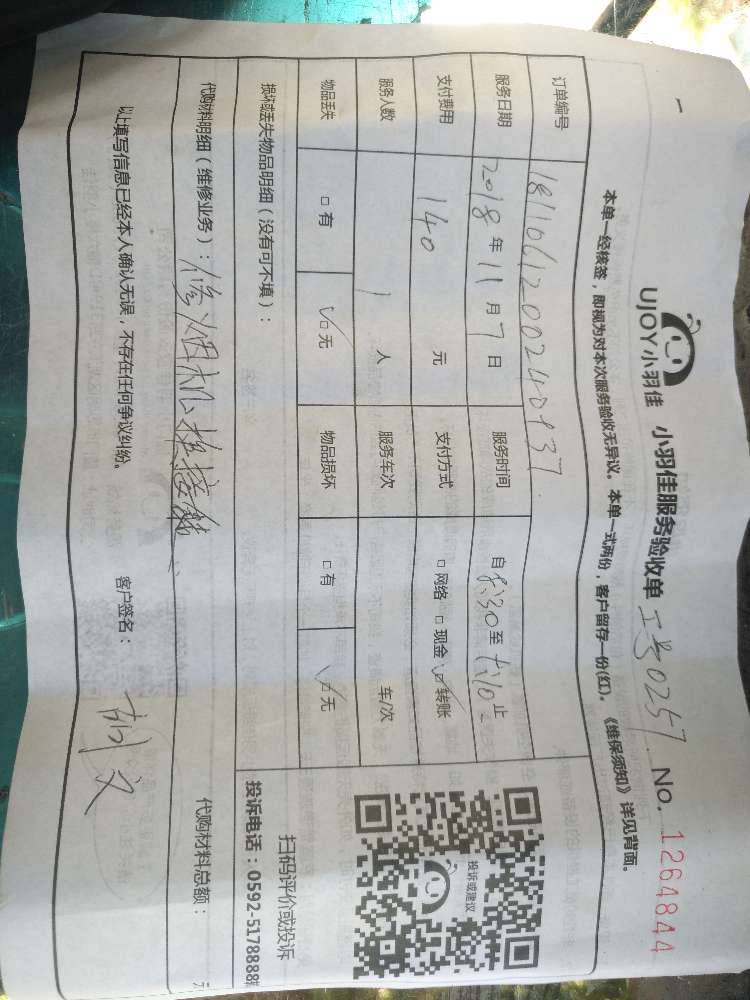 UJOY小羽佳 小羽佳服务验收单 工号0257 No. 1264844
本单一经核签，即视为对本次服务验收无异议。本单一式两份，客户留存一份(红)。《维保须知》详见背面。
订单编号 1811061200240937
服务日期 2018年11月7日 服务时间 自8:30至 止
支付费用 140 元 支付方式 □网络 □现金 ☑转账
服务人数 1 人 服务车次 车/次
物品丢失 □有 ☑无 物品损坏 □有 ☑无
损坏或丢失物品明细（没有可不填）：
代购材料明细（维修业务）：修烟机 代购材料总额： 元
以上填写信息已经本人确认无误，不存在任何争议纠纷。 客户签名：
投诉或建议
扫码评价或投诉
投诉电话：0592-5178888